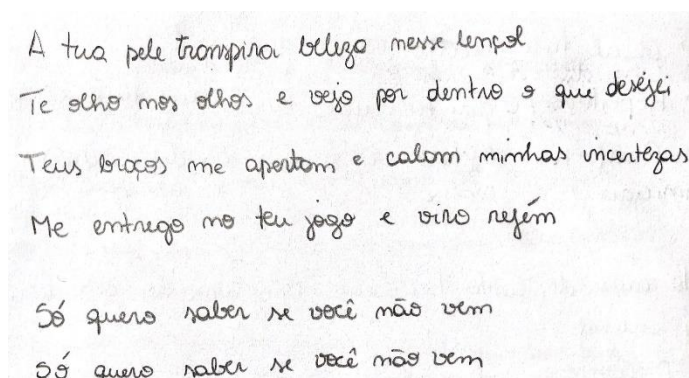 A tua pele transpira beleza nesse lençol
Te olho nos olhos e vejo por dentro o que desejei
Teus braços me apertam e calam minhas incertezas
Me entrego no teu jogo e viro refém
Só quero saber se você não vem
Só quero saber se você não vem